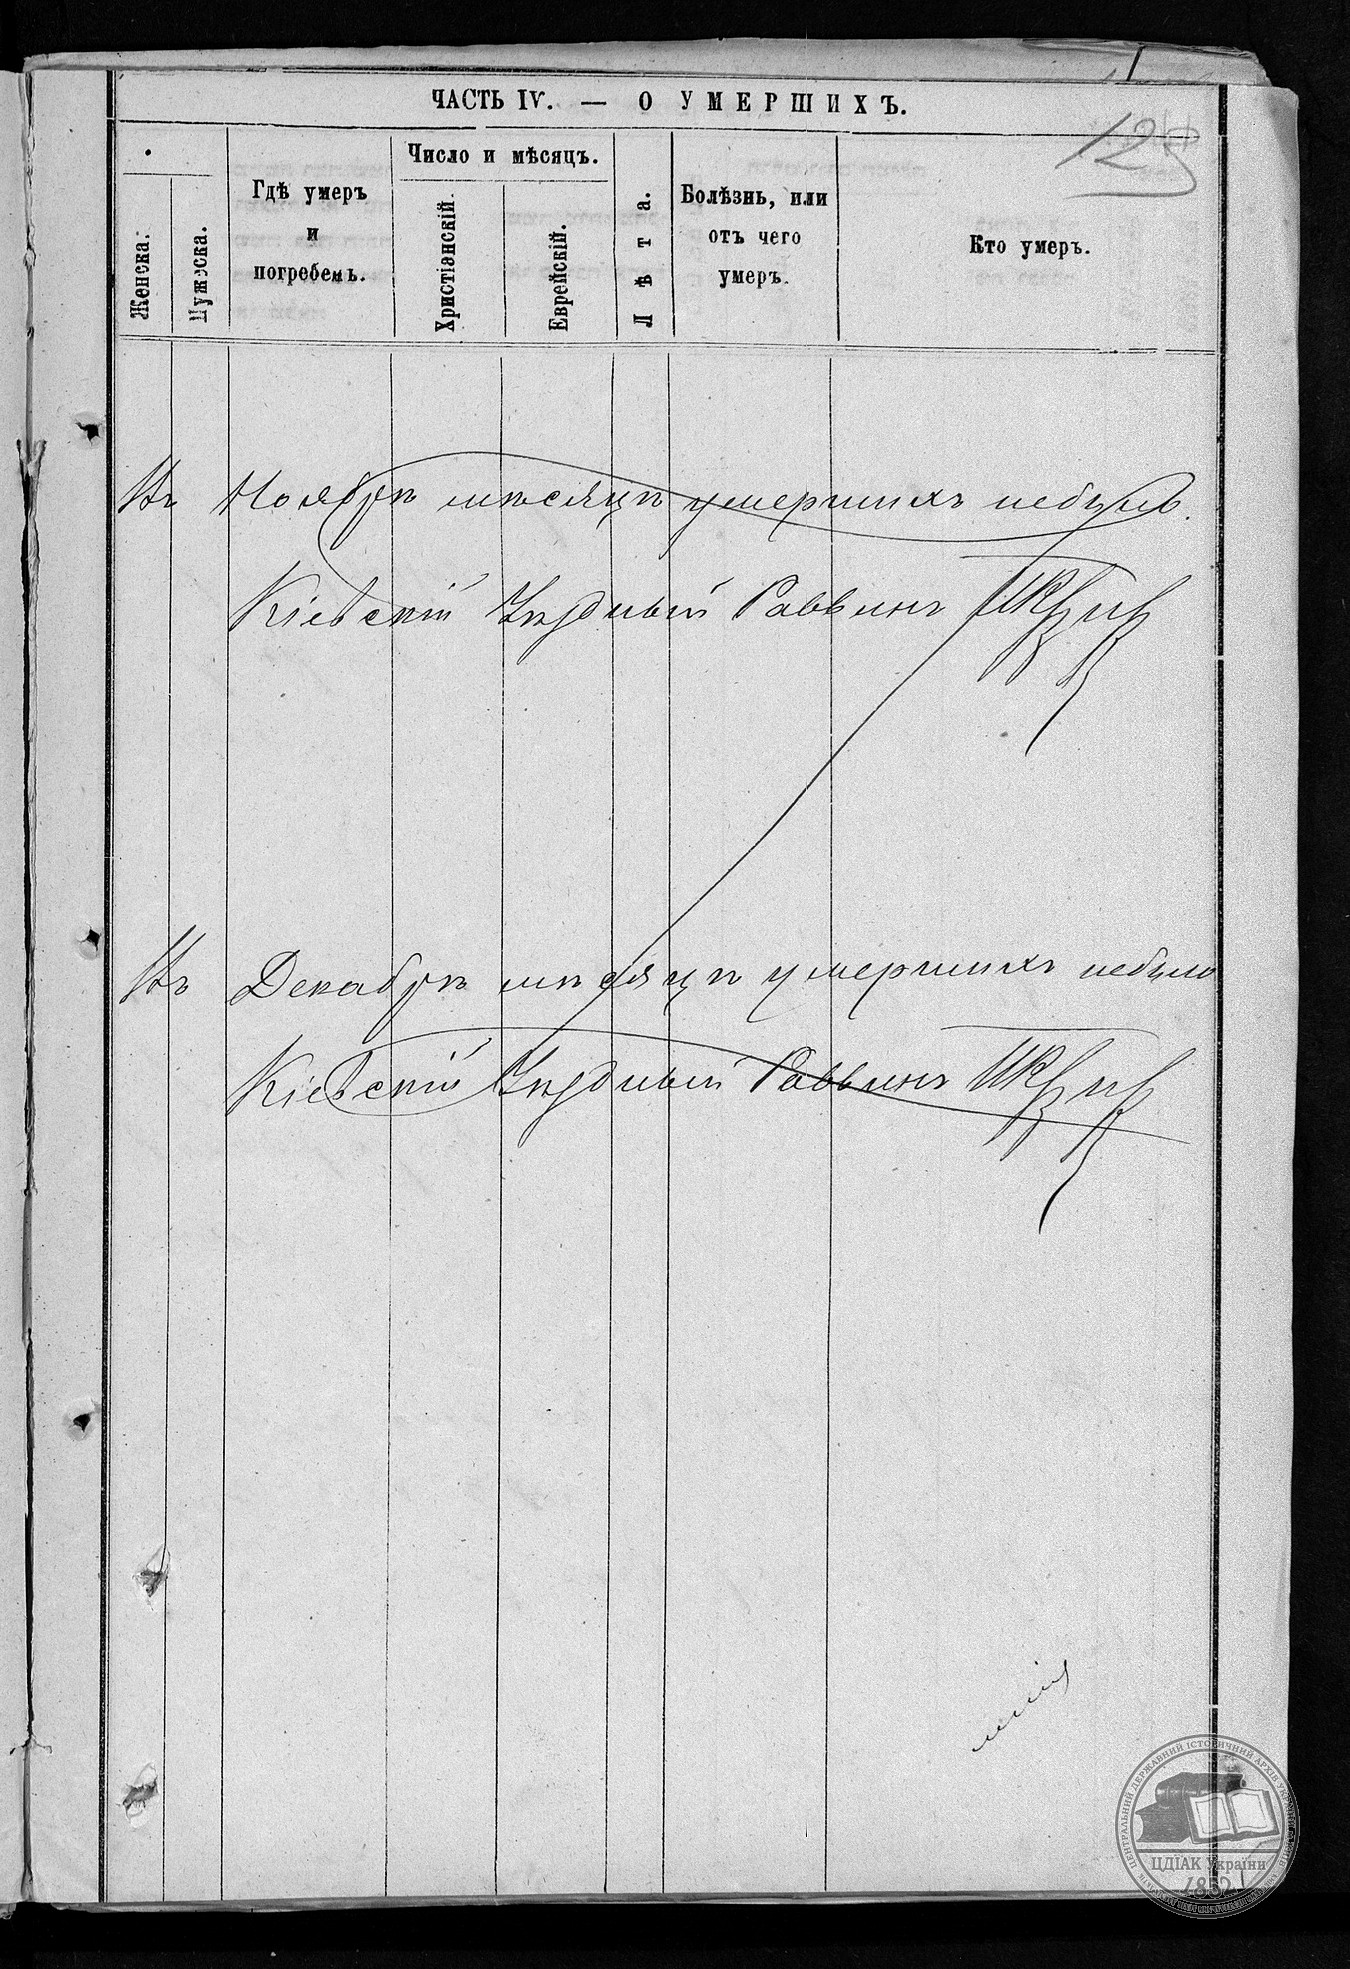 ЧАСТЬ IV. — О УМЕРШИХЪ.
125
Женска.
Мужеска.
Гдѣ умеръ
и
погребенъ.
Число и мѣсяцъ.
Христіанскій.
Еврейскій.
Лѣта.
Болѣзнь, или
отъ чего
умеръ.
Кто умеръ.
Въ Ноябрѣ мѣсяцѣ умершихъ небыло.
Кіевскій Уѣздный Раввинъ
Въ Декабрѣ мѣсяцѣ умершихъ небыло
Кіевскій Уѣздный Раввинъ
ЦЕНТРАЛЬНИЙ ДЕРЖАВНИЙ ІСТОРИЧНИЙ АРХІВ УКРАЇНИ
ЦДІАК України
1852